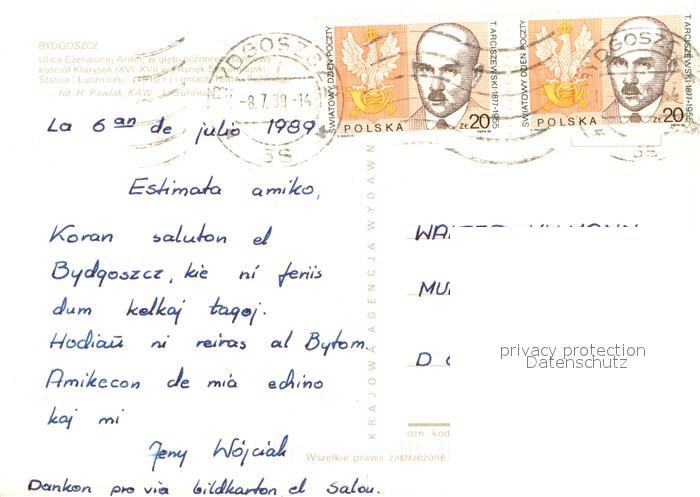 BYDGOSZCZ
Ulica Czerwonej Armii, w głębi
kościół Klarysek (XVI-XVII w.) Rynek
Statua „Łuczniczki” (1910 r.) i gmach
fot. H. Pawlak, KAW - J. Surowiec
ŚWIATOWY DZIEŃ POCZTY
T. ARCISZEWSKI·1877-1955
POLSKA zł 20
ŚWIATOWY DZIEŃ POCZTY
T. ARCISZEWSKI·1877-1955
POLSKA zł 20
BYDGOSZCZ
-8.7.89-14
La 6an de julio 1989.
Estimata amiko,
Koran saluton el
Bydgoszcz, kie ni feriis
dum kelkaj tagoj.
Hodiaŭ ni reiras al Bytom.
Amikecon de mia edzino
kaj mi
Jerzy Wójciak
Dankon pro via bildkarton el Salou.
KRAJOWA AGENCJA WYDAWN
ozn. kod
Wszelkie prawa zastrzeżone
privacy protection
Datenschutz